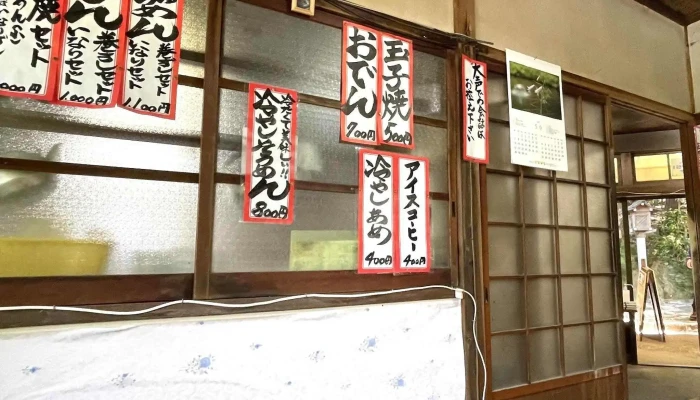 焼セット
000円
巻きセット
いなりセット
1.000円
巻きセット
いなりセット
1.100円
冷たくて美味しい!!
冷やしそうめん
800円
おでん
700円
玉子焼
500円
冷やしあめ
400円
アイスコーヒー
400円
大声での会話は
お控え下さい